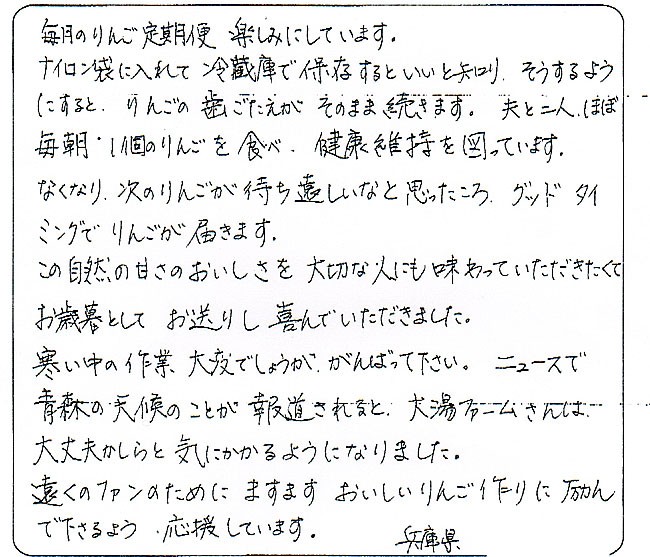 毎月のりんご定期便 楽しみにしています。
ナイロン袋に入れて 冷蔵庫で保存するといいと知り、そうするよう
にすると、りんごの歯ごたえが そのまま続きます。夫と二人、ほぼ
毎朝・1個のりんごを食べ、健康維持を図っています。
なくなり、次のりんごが待ち遠しいなと思ったころ、グッド タイ
ミングで りんごが届きます。
この自然の甘さのおいしさを 大切な人にも味わっていただきたくて
お歳暮として お送りし 喜んでいただきました。
寒い中の作業、大変でしょうが、がんばって下さい。 ニュースで
青森の天候のことが報道されると、大湯ファームさんは、
大丈夫かしらと気にかかるようになりました。
遠くのファンのために ますます おいしいりんご作りに励ん
で下さるよう、応援しています。 兵庫県